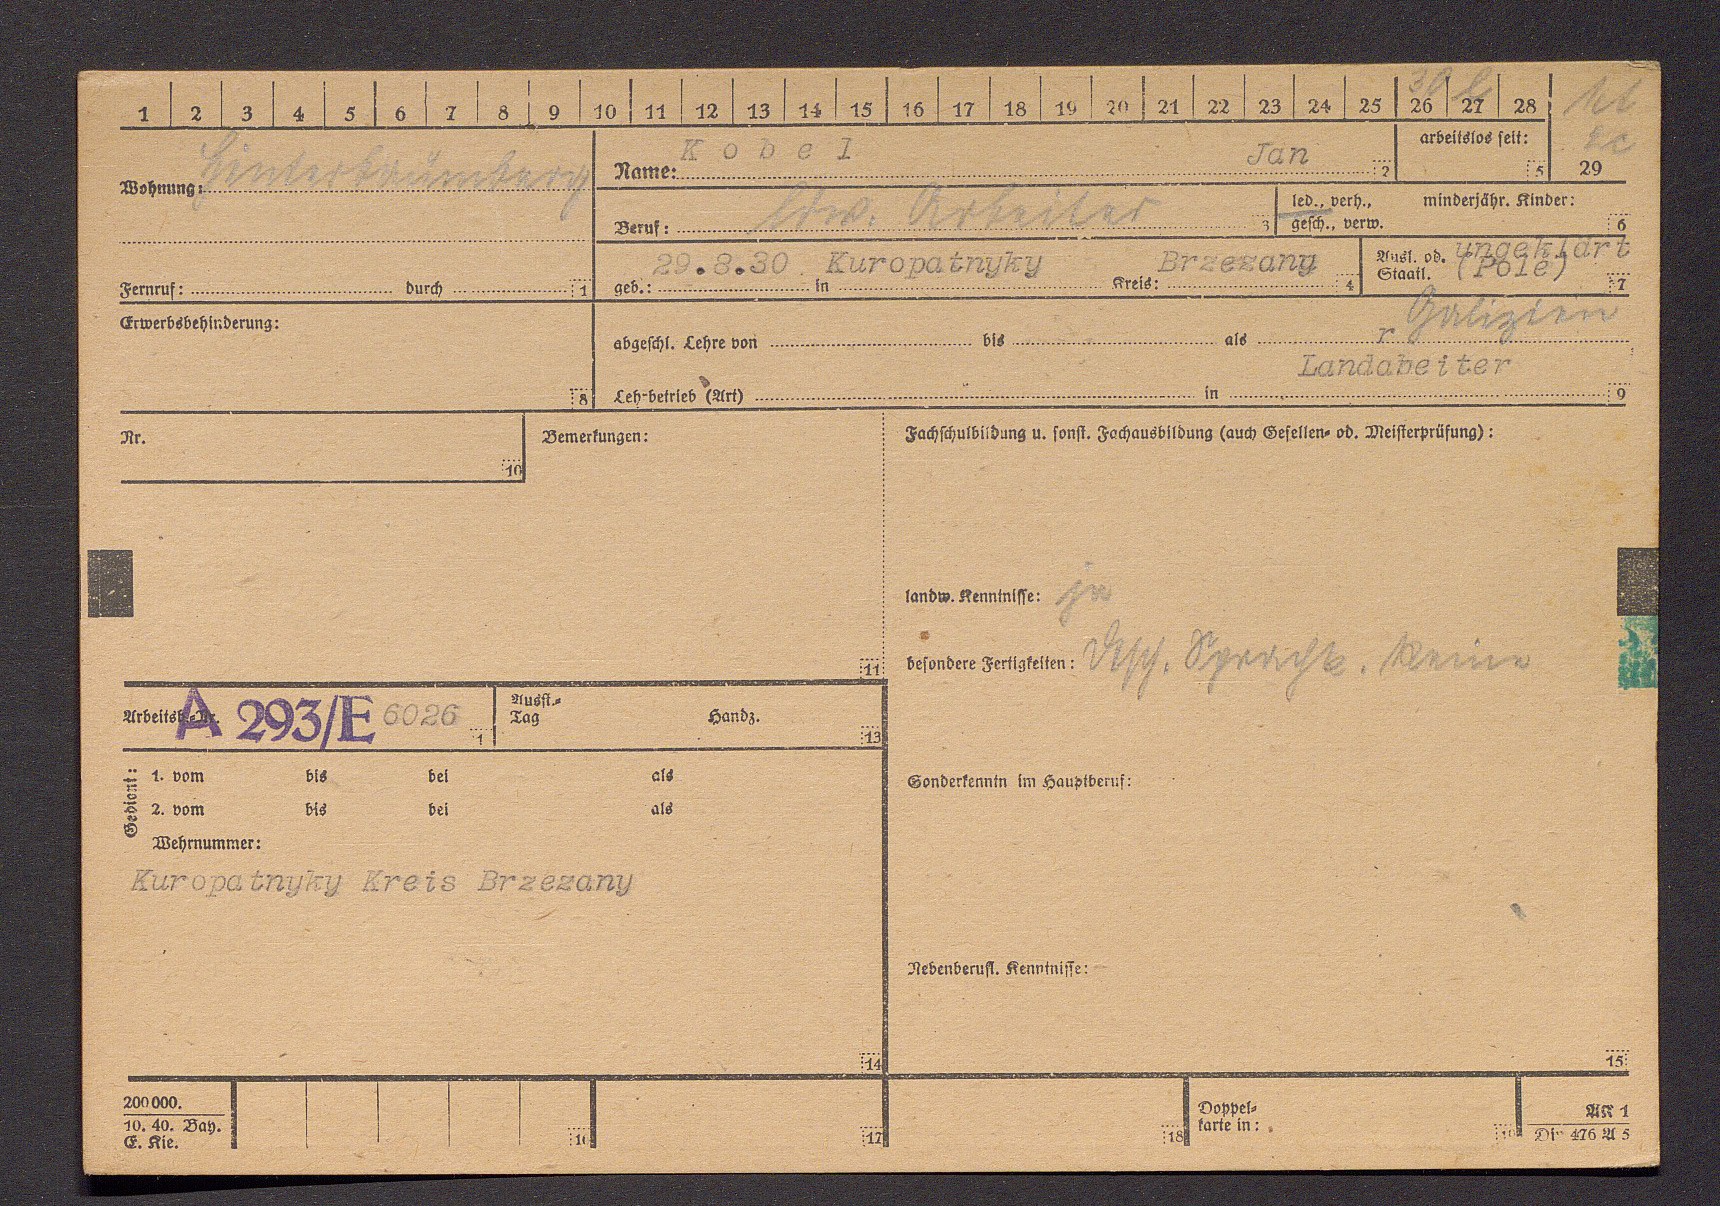 1 2 3 4 5 6 7 8 9 10 11 12 13 14 15 16 17 18 19 20 21 22 23 24 25 26 27 28
29
Wohnung:
Name: Kobel Jan 2
arbeitslos seit: 5
Beruf: ldw. Arbeiter 3
led., verh., gesch., verw.
minderjähr. Kinder: 6
Fernruf: durch 1
geb.: 29.8.30 in Kuropatnyky Kreis: Brzezany 4
Ausl. od. Staatl. ungeklärt (Pole) 7
Galizien
Erwerbsbehinderung: 8
abgeschl. Lehre von bis als r
Landabeiter
Leh-betrieb (Art) in 9
Nr. 10
Bemerkungen: 11
Fachschulbildung u. sonst. Fachausbildung (auch Gesellen- od. Meisterprüfung):
landw. Kenntnisse: ja
besondere Fertigkeiten: Dtsch. Sprache. keine
Arbeitsb.-Nr. A 293/E 6026 1
Ausst.-Tag Handz. 13
Gedient:
1. vom bis bei als
2. vom bis bei als
Wehrnummer:
Kuropatnyky Kreis Brzezany
14
Sonderkenntn im Hauptberuf:
Nebenberufl. Kenntnisse:
15
200 000.
10. 40. Bay.
E. Kie.
16 17 18
Doppel-
karte in: 19
AK 1
Din 476 A 5